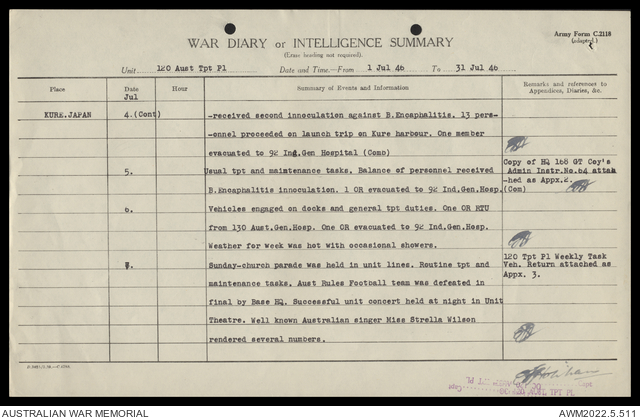 Army Form C.2118
(adapted.)
WAR DIARY or INTELLIGENCE SUMMARY
(Erase heading not required).
Unit 120 Aust Tpt Pl Date and Time—From 1 Jul 46 To 31 Jul 46
Place Date Hour Summary of Events and Information Remarks and references to Appendices, Diaries, &c.
Jul
KURE.JAPAN 4.(Cont) -received second innoculation against B.Encaphalitis. 13 pers-
-onnel proceeded on launch trip on Kure harbour. One member
evacuated to 92 Ind.Gen Hospital (Comb)
5. Usual tpt and maintenance tasks. Balance of personnel received
B.Encaphalitis innoculation. 1 OR evacuated to 92 Ind.Gen.Hosp.(Com)
Copy of HQ 168 GT Coy's
Admin Instr.No.64 attach
-hed as Appx.2.
6. Vehicles engaged on docks and general tpt duties. One OR RTU
from 130 Aust.Gen.Hosp. One OR evacuated to 92 Ind.Gen.Hosp.
Weather for week was hot with occasional showers.
7. Sunday-church parade was held in unit lines. Routine tpt and
maintenance tasks. Aust Rules Football team was defeated in
final by Base HQ. Successful unit concert held at night in Unit
Theatre. Well known Australian singer Miss Strella Wilson
rendered several numbers.
120 Tpt Pl Weekly Task
Veh. Return attached as
Appx. 3.
AUST TPT PL
AUSTRALIAN WAR MEMORIAL
AWM2022.5.511